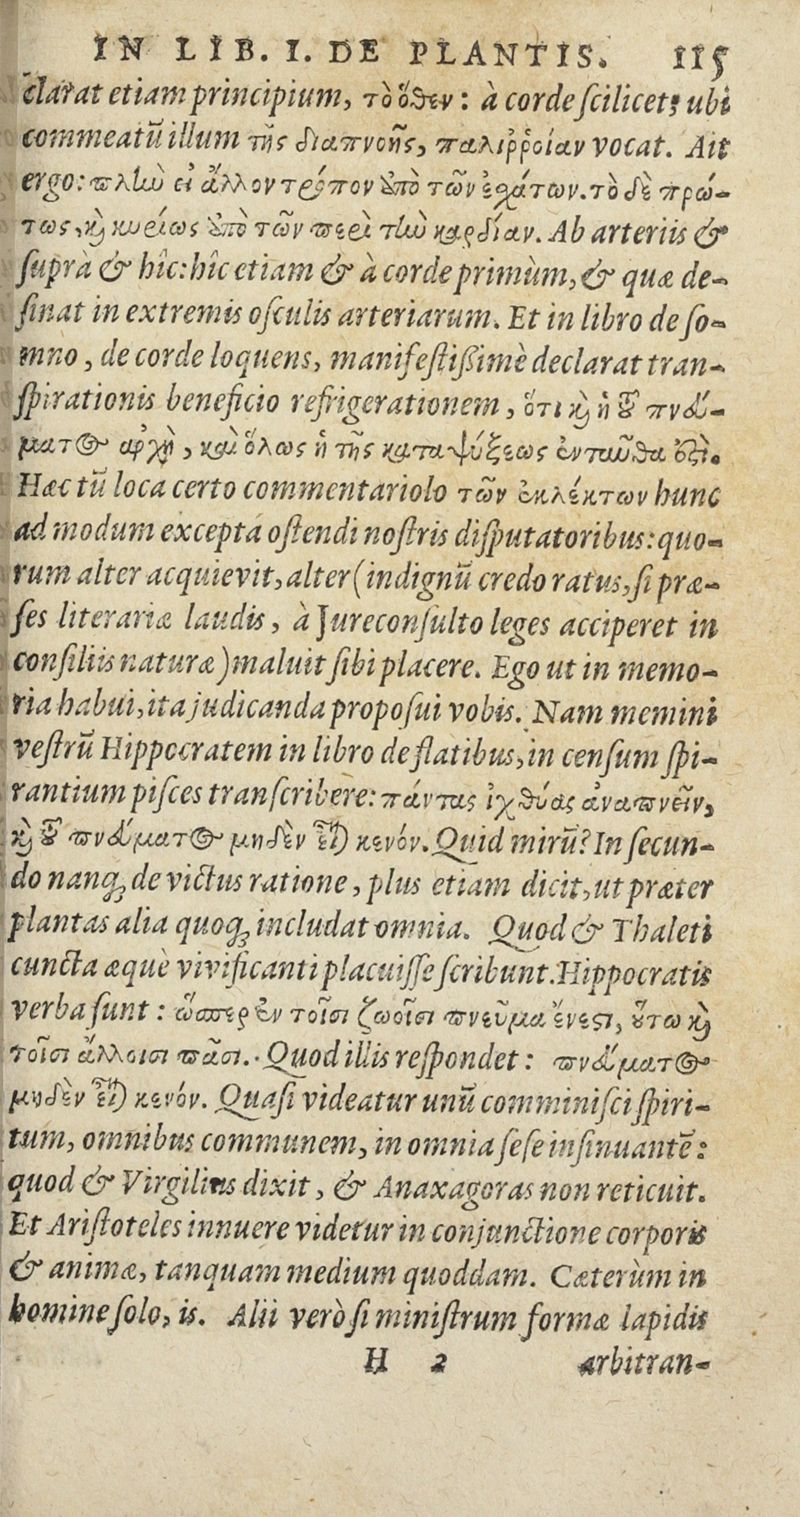 IN LIB. I. DE PLANTIS. 115
clarat etiam principium, τὸ ὅθεν: à corde scilicet; ubi
commeatū illum τῆς διαπνοῆς, παλιῤῥοίαν vocat. Ait
ergo: πλὴν εἰ ἄλλον τρόπον ὑπὸ τῶν ἐσχάτων. τὸ δὲ πρώ-
τως, καὶ κυρίως ὑπὸ τῶν περὶ τὴν καρδίαν. Ab arteriis &
suprà & hîc: hîc etiam & à corde primùm, & quæ de-
sinat in extremis osculis arteriarum. Et in libro de so-
mno, de corde loquens, manifestissimè declarat tran-
spirationis beneficio refrigerationem, ὅτι καὶ ἡ τοῦ πνεύ-
ματος ἀρχὴ, καὶ ὅλως ἡ τῆς καταψύξεως ἐνταῦθα ἐστί.
Hæc tū loca certo commentariolo τῶν ἐκλέκτων hunc
ad modum excepta ostendi nostris disputatoribus: quo-
rum alter acquievit, alter (indignū credo ratus, si præ-
ses literariæ laudis, à Jureconsulto leges acciperet in
consiliis naturæ) maluit sibi placere. Ego ut in memo-
ria habui, ita judicanda proposui vobis. Nam memini
vestrū Hippocratem in libro de flatibus, in censum spi-
rantium pisces transcribere: πάντας ἰχθύας ἀναπνεῖν,
καὶ τοῦ πνεύματος μηδὲν εἶναι κενόν. Quid mirū? In secun-
do nanq; de victus ratione, plus etiam dicit, ut præter
plantas alia quoq; includat omnia. Quod & Thaleti
cuncta æquè vivificanti placuisse scribunt. Hippocratis
verba sunt: ὥσπερ ἐν τοῖσι ζωοῖσι πνεῦμα ἔνεστι, οὕτω καὶ
τοῖσι ἄλλοισι πᾶσι. Quod illis respondet: πνεύματος
μηδὲν εἶναι κενόν. Quasi videatur unū comminisci spiri-
tum, omnibus communem, in omnia sese insinuantē:
quod & Virgilius dixit, & Anaxagoras non reticuit.
Et Aristoteles innuere videtur in conjunctione corporis
& animæ, tanquam medium quoddam. Cæterùm in
homine solo, is. Alii verò si ministrum formæ lapidis
H 2 arbitran-